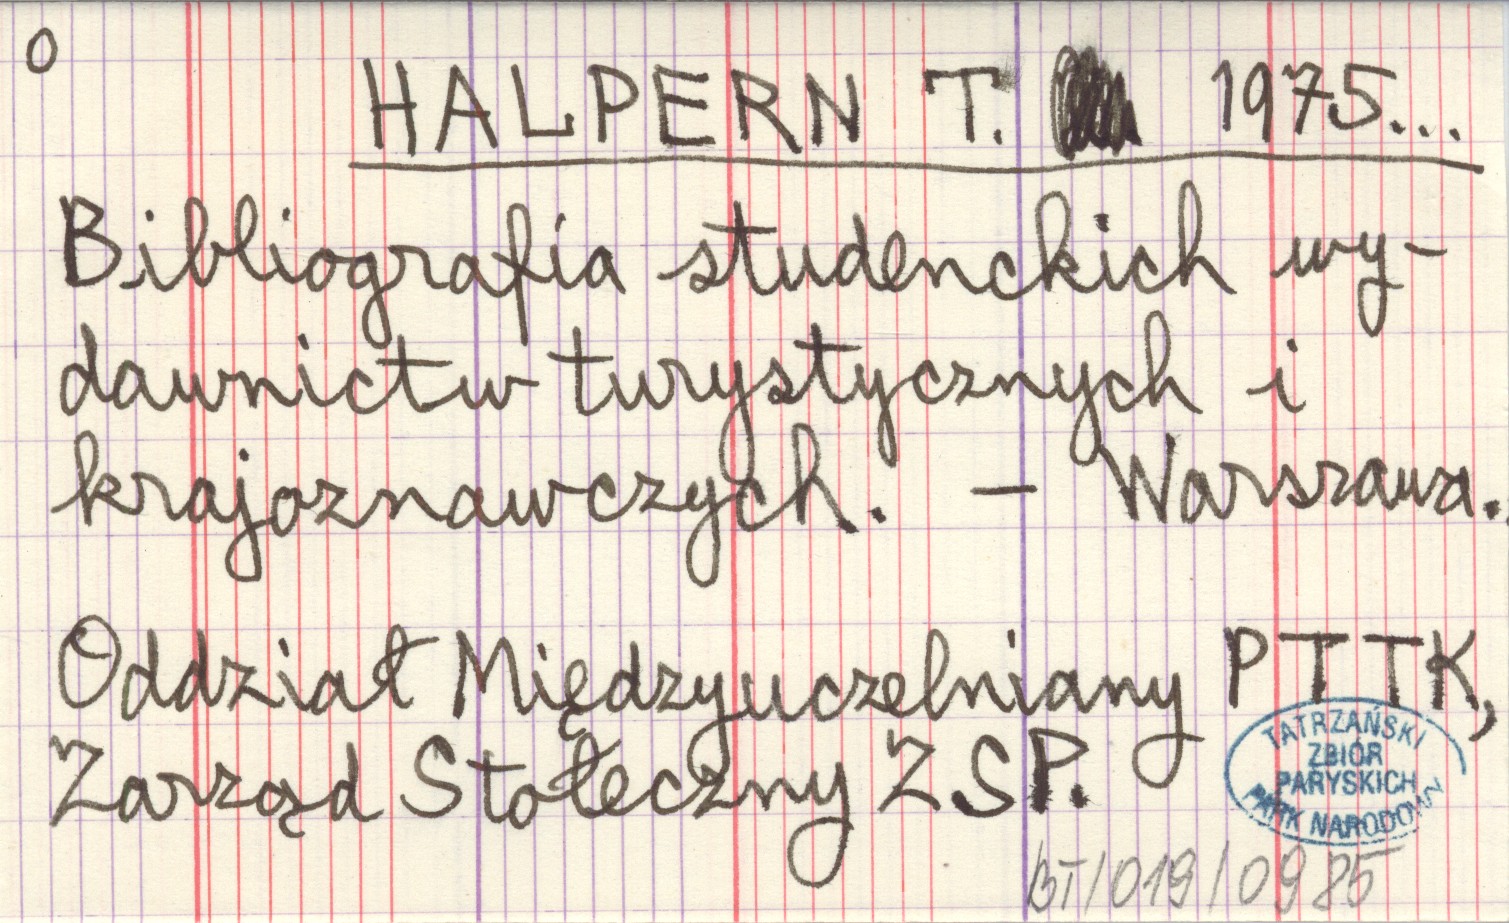 0
HALPERN T. 1975...
Bibliografia studenckich wy-
dawnictw turystycznych i
krajoznawczych. - Warszawa.
Oddział Międzyuczelniany PTTK,
Zarząd Stołeczny ZSP.
TATRZAŃSKI
ZBIÓR
PARYSKICH
PARK NARODOWY
BT/019/0985